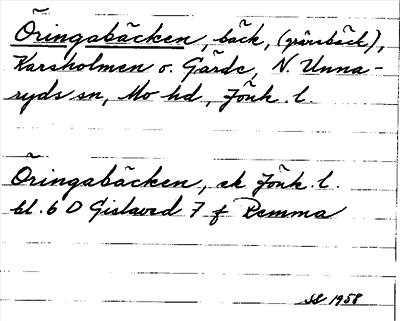 Öringabäcken, bäck, (gränsbäck),
Karsholmen o. Gärde, N. Unna-
ryds sn, Mo hd, Jönk. l.
Öringabäcken, ek Jönk. l.
bl. 6 D Gislaved 7 f Remma
SL 1958